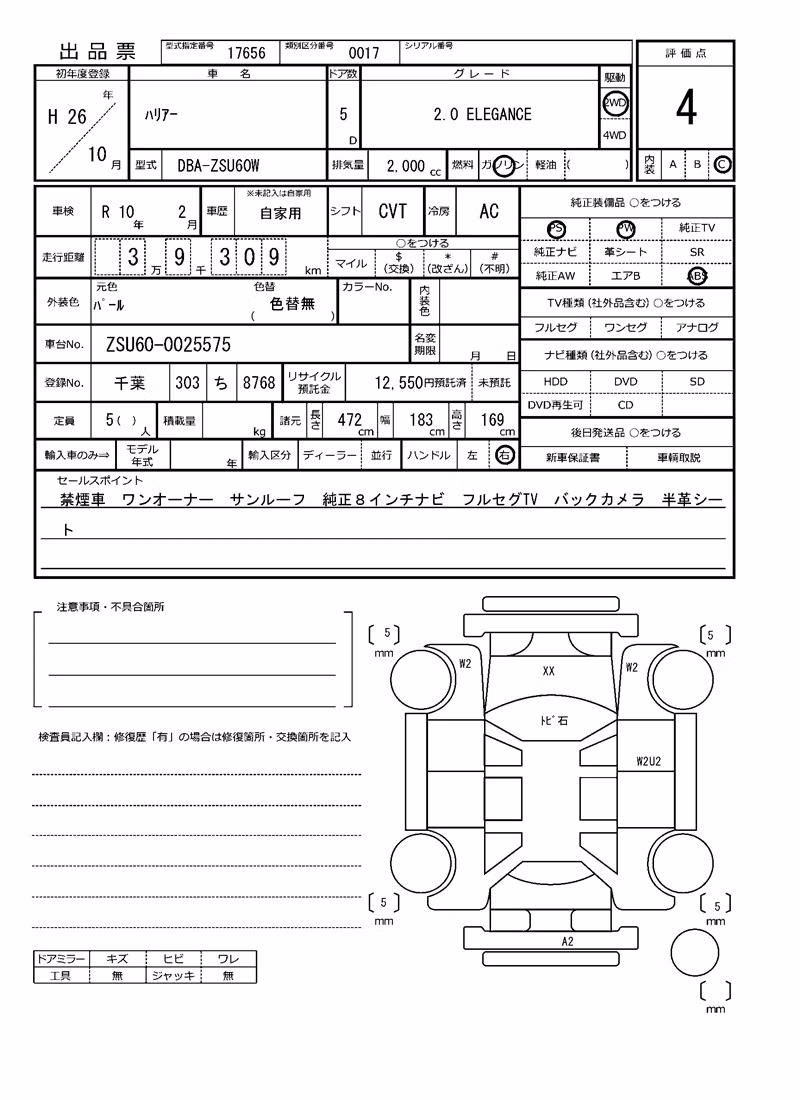 出品票 型式指定番号 17656 類別区分番号 0017 シリアル番号
評価点
4
内装 A B C
初年度登録 車名 ドア数 グレード 駆動
H 26 年 10 月 ハリアー 5 D 2.0 ELEGANCE 2WD
4WD
型式 DBA-ZSU60W 排気量 2,000 cc 燃料 ガソリン 軽油 ( )
車検 R 10 年 2 月 車歴 ※未記入は自家用 自家用 シフト CVT 冷房 AC
走行距離 3 万 9 千 3 0 9 km
○をつける
マイル $ (交換) * (改ざん) # (不明)
外装色 元色 パール 色替 ( 色替無 ) カラーNo. 内装色
車台No. ZSU60-0025575 名変期限 月 日
登録No. 千葉 303 ち 8768 リサイクル預託金 12,550円預託済 未預託
定員 5( ) 人 積載量 kg 諸元 長さ 472 cm 幅 183 cm 高さ 169 cm
輸入車のみ⇒ モデル年式 年 輸入区分 ディーラー 並行 ハンドル 左 右
純正装備品 ○をつける
PS PW 純正TV
純正ナビ 革シート SR
純正AW エアB ABS
TV種類(社外品含む)○をつける
フルセグ ワンセグ アナログ
ナビ種類(社外品含む)○をつける
HDD DVD SD
DVD再生可 CD
後日発送品 ○をつける
新車保証書 車輌取説
セールスポイント
禁煙車 ワンオーナー サンルーフ 純正8インチナビ フルセグTV バックカメラ 半革シー
ト
注意事項・不具合箇所
検査員記入欄:修復歴「有」の場合は修復箇所・交換箇所を記入
ドアミラー キズ ヒビ ワレ
工具 無 ジャッキ 無
5 mm
5 mm
W2 XX W2
トビ石
W2U2
5 mm
5 mm
A2
mm